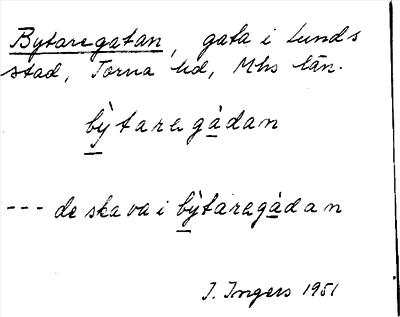 Bytaregatan, gata i Lunds
stad, Torna hd, Mhs län.
bỳtaregådan
--- de ska va i bỳtaregådan
I. Ingers 1951